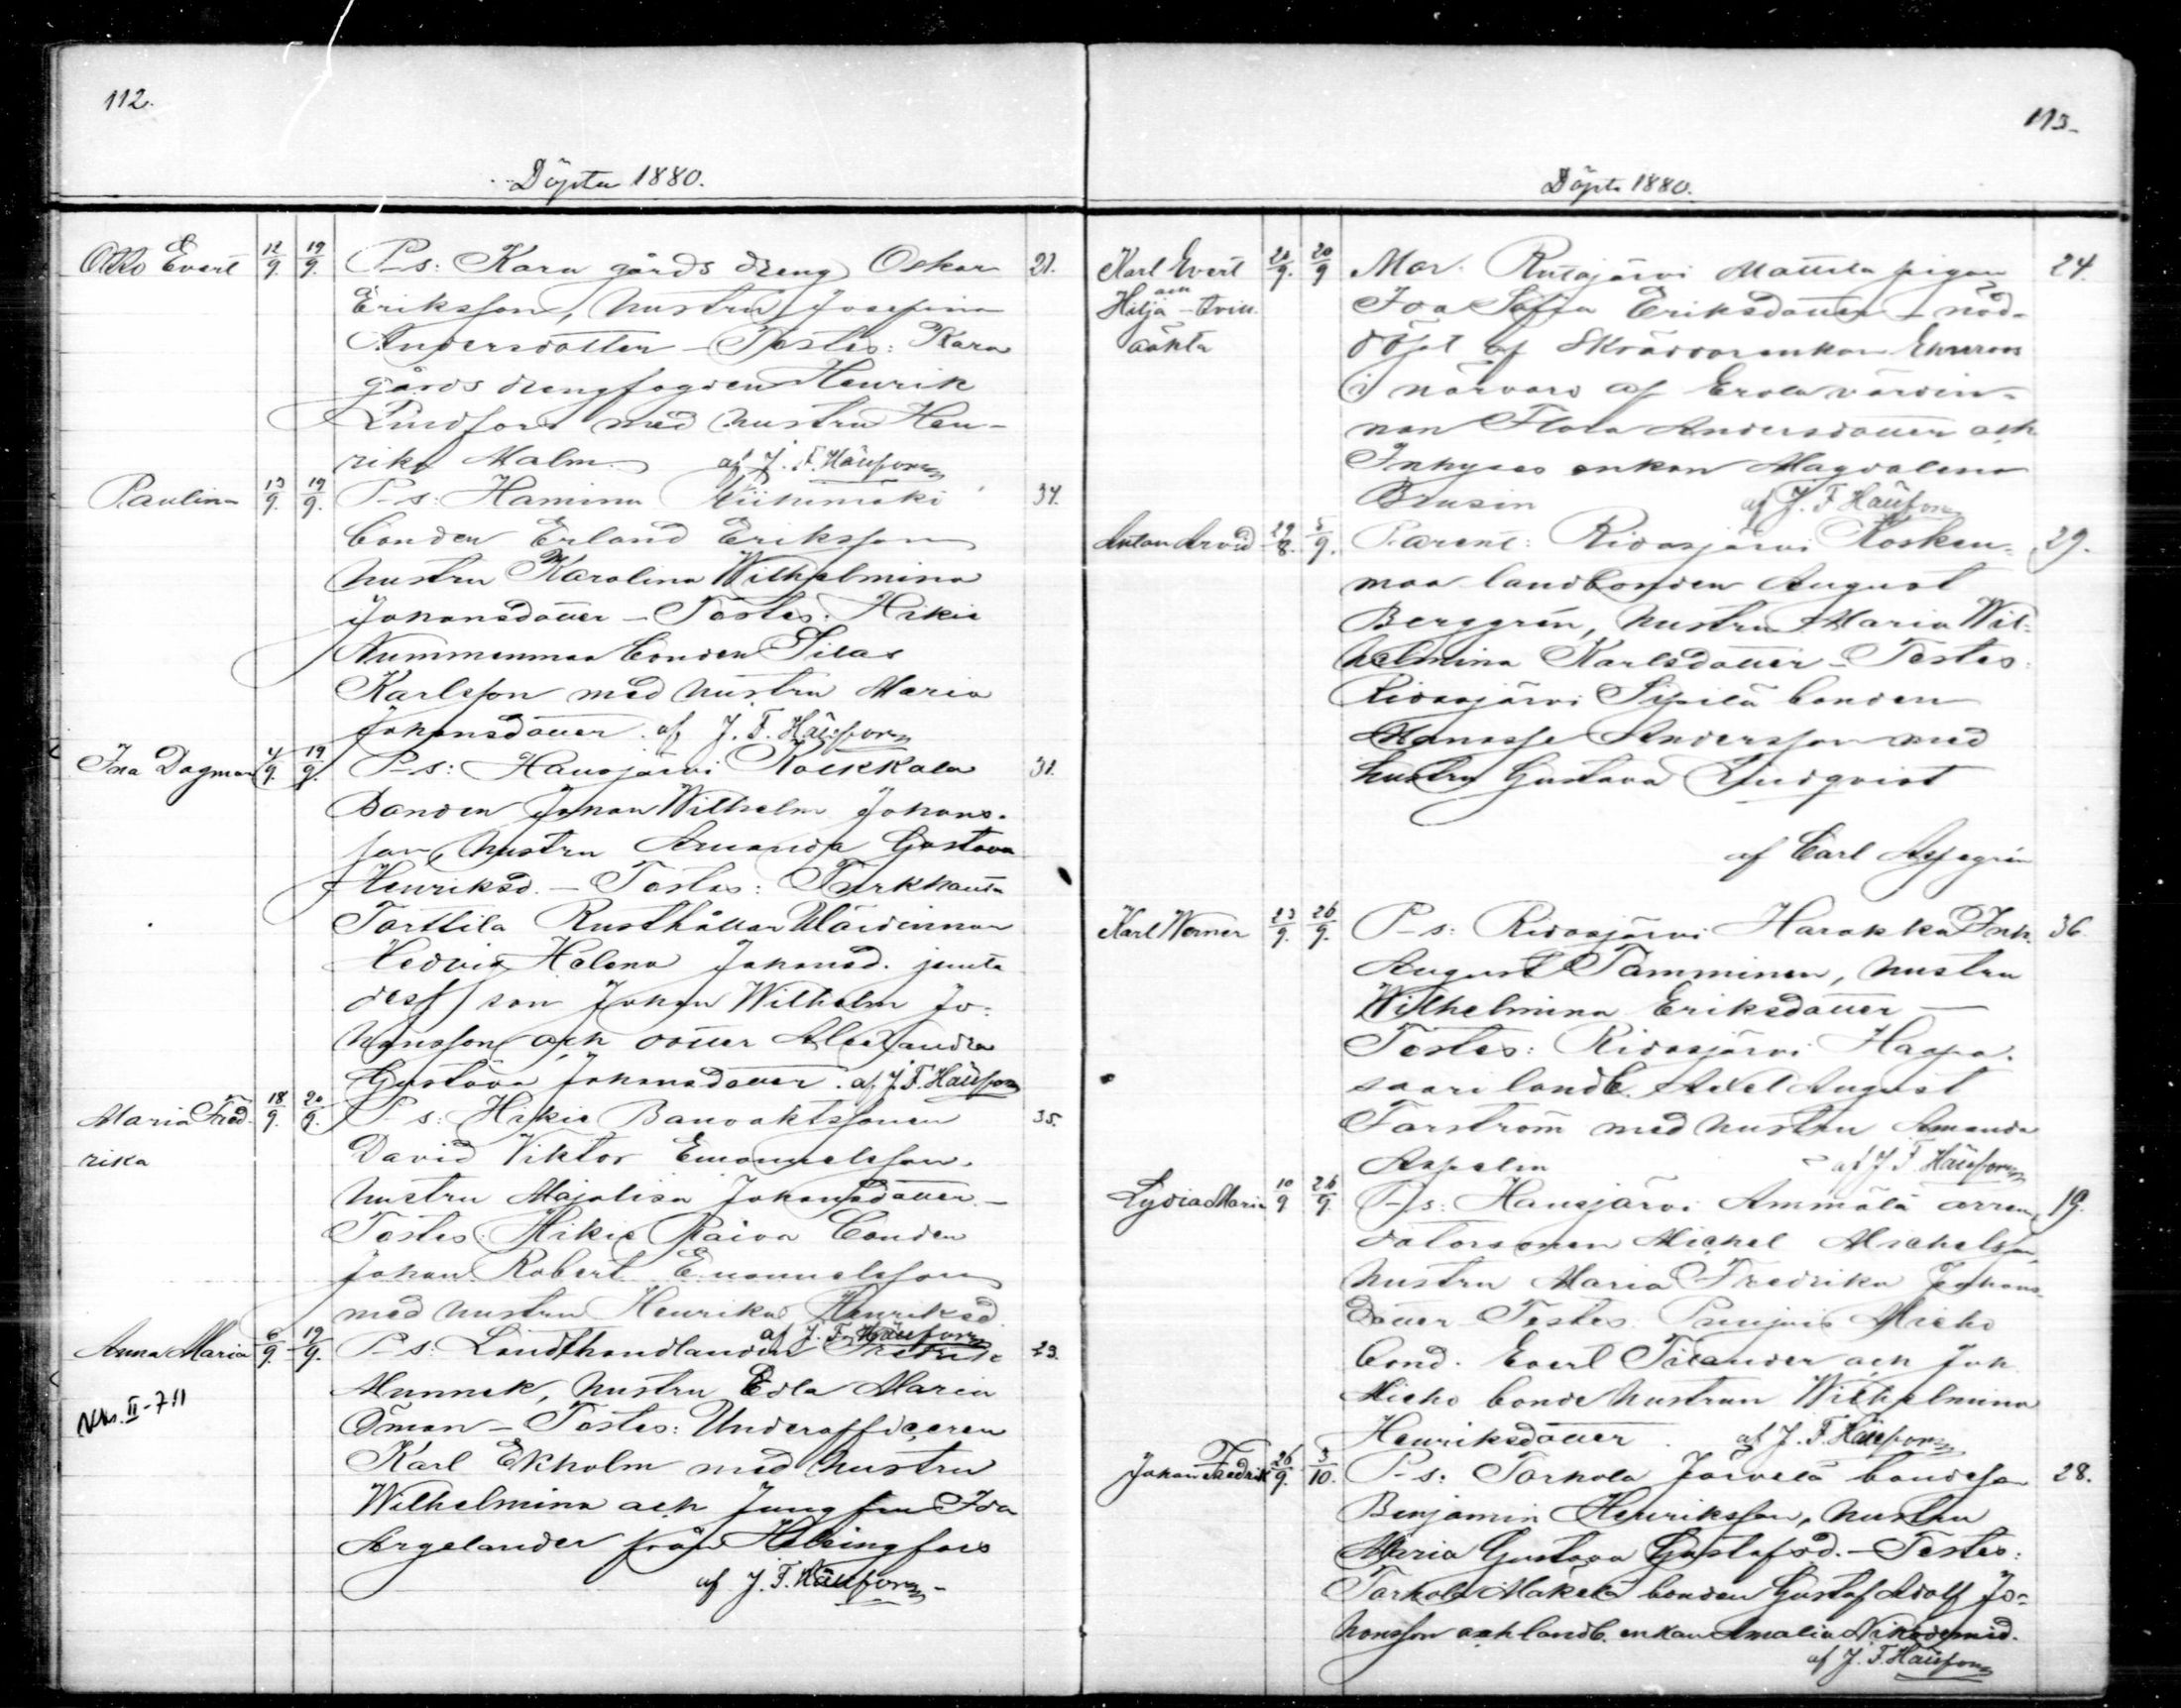 112.
Döpta 1880.
Otto Evert 12/9. 19/9. P-s: Kara gårds dreng Oskar 21.
Eriksson, hustru Josefina
Andersdotter – Testes: Kara
gårds drengfogden Henrik
Lindfors med hustru Hen-
rika Malm. af J. F. Häusson
Paulina 13/9. 19/9. P-s: Haminu Riihimäki 34.
bonden Erland Eriksson
hustru Karolina Wilhelmina
Johansdotter – Testes: Hikie
Nummenmaa bonden Silas
Karlsson med hustru Maria
Johansdotter. af J. F. Häusson
Ina Dagmar 4/9. 19/9. P-s: Hausjärvi Kokkala 31.
Bonden Johan Wilhelm Johans-
son, hustru Amanda Gustava
Henriksd. – Testes: Turkhauta
Torttila Rusthållar Wärdinnan
Hedvig Helena Johansd. jemte
dess son Johan Wilhelm Jo-
hansson och dotter Alexandra
Gustava Johansdotter. af J. F. Häusson
Maria Fred- 18/9. 20/9. P-s: Hikie Banvaktssonen 35.
rika David Viktor Emanuelsson,
hustru Majalisa Johansdotter –
Testes: Hikie Raiva bonden
Johan Robert Emanuelsson
med hustru Henrika Henriksd.
af J. F. Häusson
Anna Maria 6/9. 19/9. P-s: Landthandlanden Fredrik 23.
Munnek, hustru Edla Maria
Öman – Testes: Underofficeren
Karl Ekholm med hustru
Wilhelmina och Jungfru Ida
Argelander från Helsingfors
af J. F. Häusson
II-711
113.
Döpta 1880.
Karl Evert 20/9. 20/9 Mor. Rutajärvi Mattila pigan 24.
och Hilja – tvill. Ida Sofia Eriksdotter – nöd-
oäkta döpt af Skräddarenkan
i närvaro af Erola värdin-
nan Flora Andersdotter och
Inhyses enkan Magdalena
Brusin af J. F. Häusson
Anton Arvid 29/8. 5/9. Parent: Ridasjärvi Kosken- 29.
maa landbonden August
Berggrén, hustru Maria Wil-
helmina Karlsdotter – Testes:
Ridasjärvi Sipilä bonden
Manasse Andersson med
hustru Gustava Lindqvist
af Carl Aspegrén
Karl Werner 23/9. 26/9. P-s: Ridasjärvi Harakka Inh. 36.
August Tamminen, hustru
Wilhelmina Eriksdotter –
Testes: Ridasjärvi Haapa-
saari landb. Axel August
Forström med hustru Amanda
Aspelin af J. F. Häusson
Lydia Maria 10/9 26/9. P-s: Hausjärvi Ammälä arren- 19.
datorsonen Michel Michelsson,
hustru Maria Fredrika Johans-
dotter Testes: Micho
bond. Evert Tilander och Joh.
Micho bonde hustrun Wilhelmina
Henriksdotter. af J. F. Häusson
Johan Fredrik 26/9. 3/10. P-s: Torhola Järvelä bondeson 28.
Benjamin Henriksson, hustru
Maria Gustava Gustafsd. – Testes:
Torhola Mäkelä bonden Gustaf Adolf Jo-
hansson och landb. enkan Amalia Nikodemid.
af J. F. Häusson